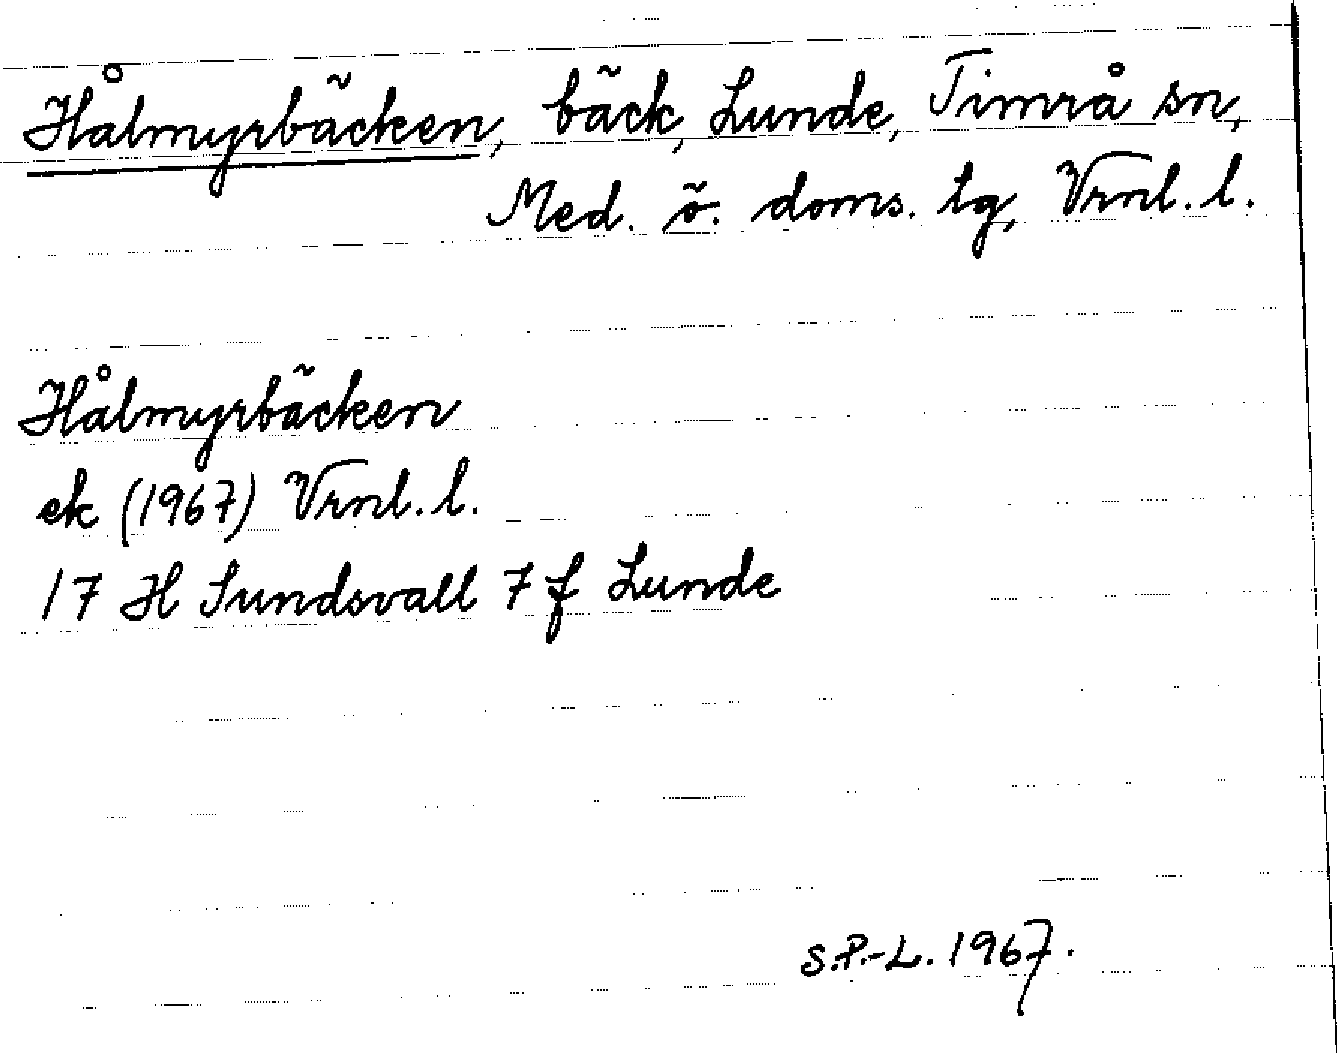 Hålmyrbäcken, bäck, Lunde, Timrå sn,
Med. ö. doms. tg, Vrnl. l.
Hålmyrbäcken
ek (1967) Vrnl. l.
17 H Sundsvall 7 f Lunde
S.P.-L. 1967.